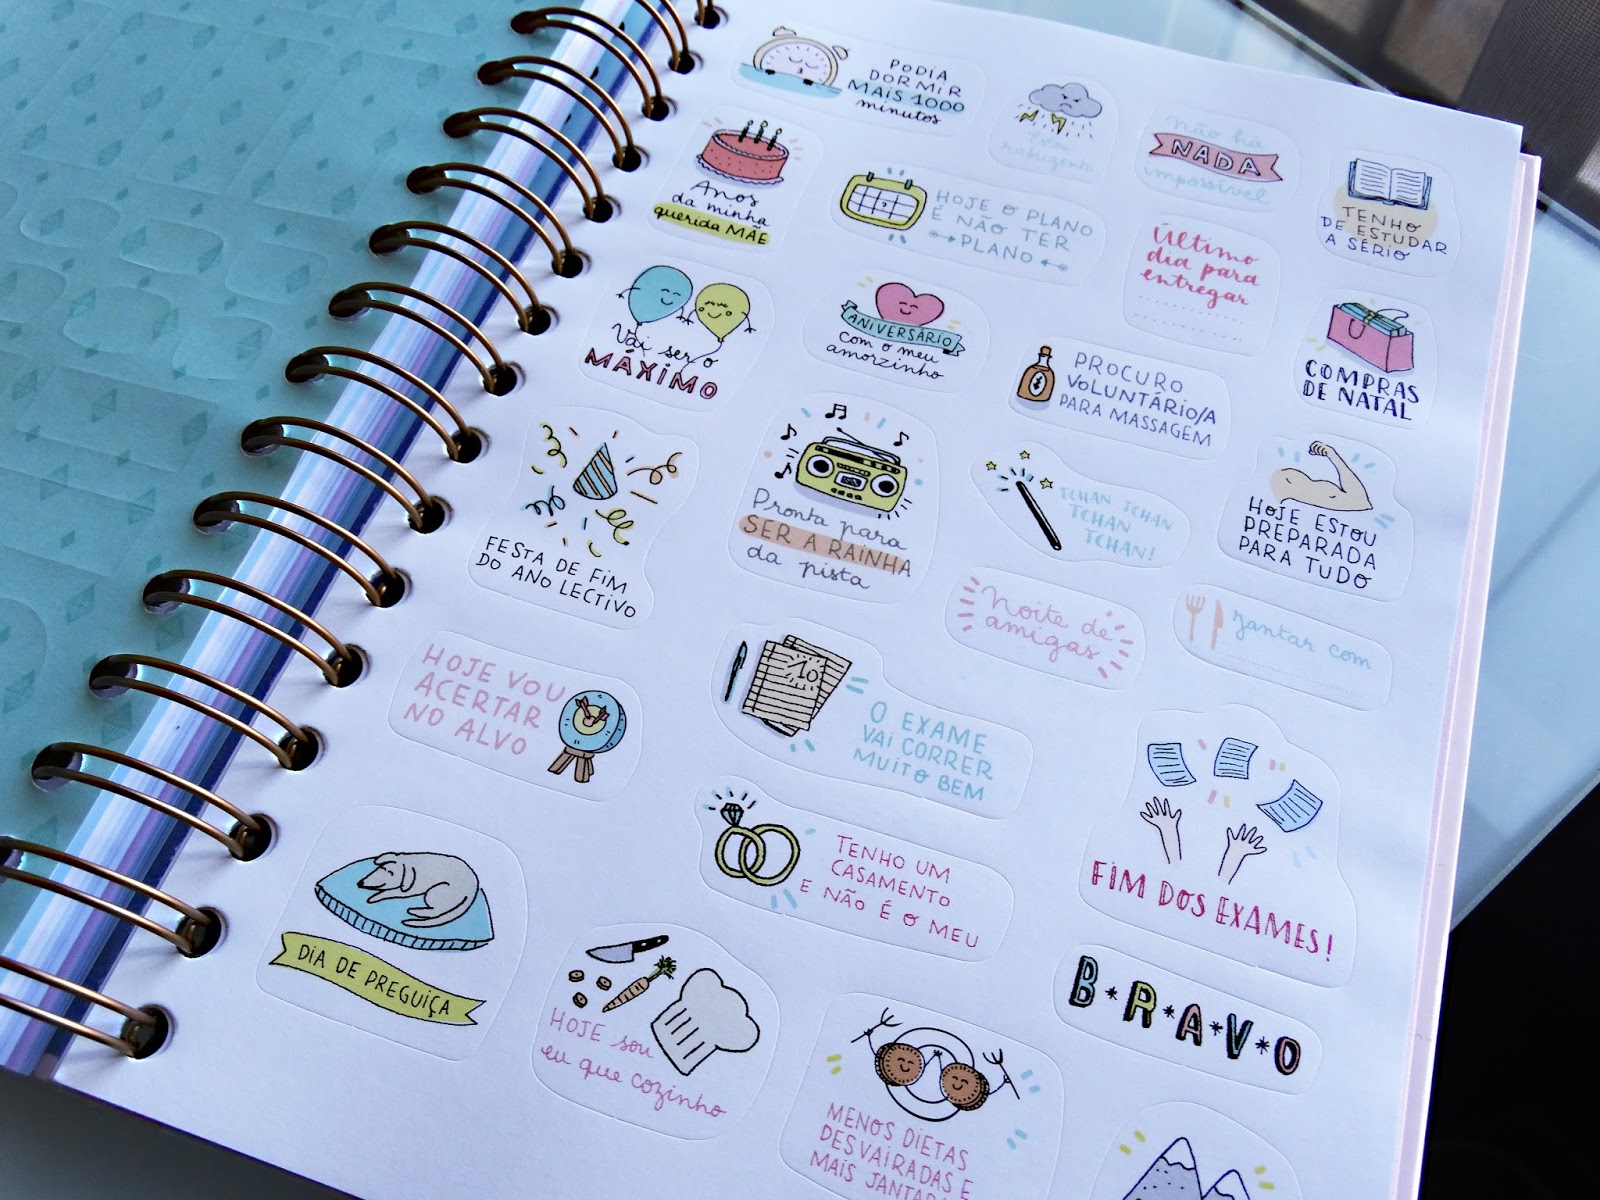 PODIA
DORMIR
MAIS 1000
minutos
Estou
rabugenta
Não há
NADA
impossível
TENHO
DE ESTUDAR
A SÉRIO
Anos
da minha
querida MÃE
HOJE O PLANO
É NÃO TER
PLANO
Último
dia para
entregar
Vai ser o
MÁXIMO
ANIVERSÁRIO
com o meu
amorzinho
PROCURO
VOLUNTÁRIO/A
PARA MASSAGEM
COMPRAS
DE NATAL
FESTA DE FIM
DO ANO LECTIVO
Pronta para
SER A RAINHA
da pista
TCHAN TCHAN
TCHAN
TCHAN!
HOJE ESTOU
PREPARADA
PARA TUDO
Noite de
amigas
Jantar com
HOJE VOU
ACERTAR
NO ALVO
10
O EXAME
VAI CORRER
MUITO BEM
FIM DOS EXAMES!
TENHO UM
CASAMENTO
E NÃO É O MEU
DIA DE PREGUIÇA
HOJE sou
eu que cozinho
B*R*A*V*O
MENOS DIETAS
DESVAIRADAS E
MAIS